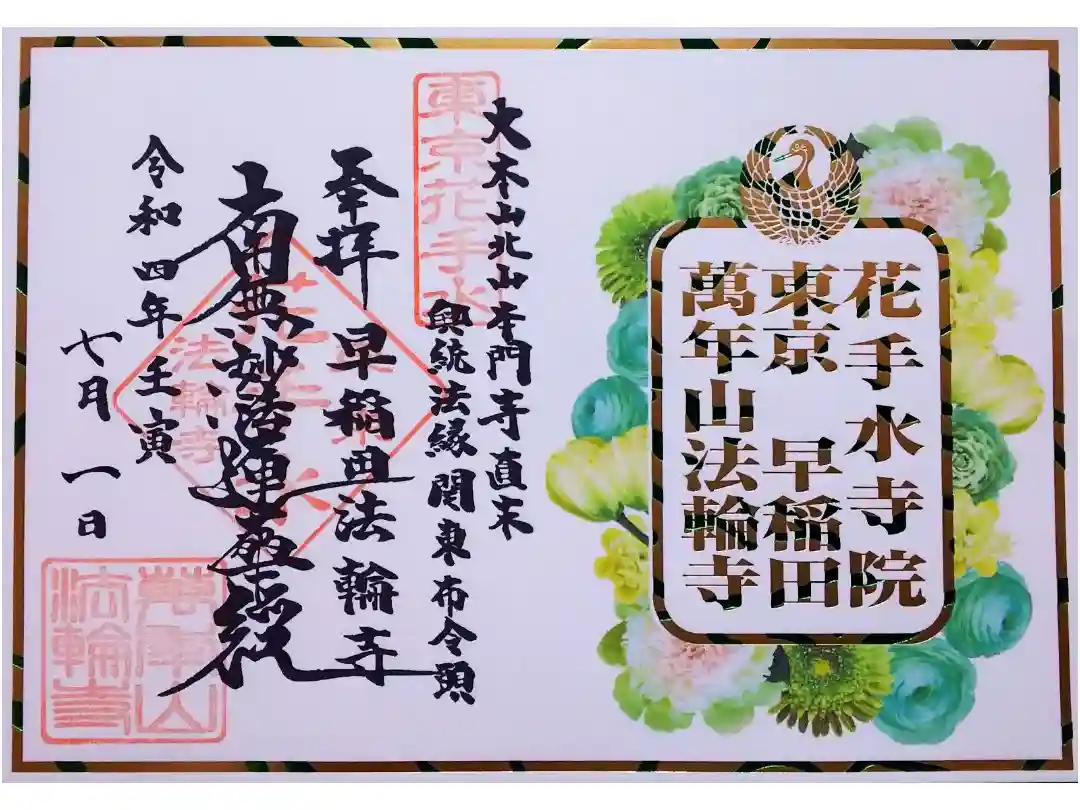 花手水寺院
東京 早稲田
萬年山法輪寺
大本山北山本門寺直末
興統法縁関東布令頭
東京花手水
奉拝 早稲田法輪寺
南無妙法蓮華経
法輪寺
令和四年壬寅
七月一日
萬年山
法輪寺